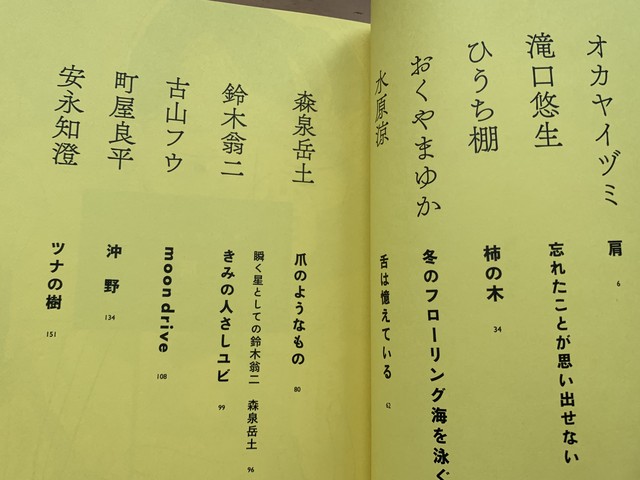 オカヤイヅミ
肩
6
滝口悠生
忘れたことが思い出せない
ひうち棚
柿の木
34
おくやまゆか
冬のフローリング海を泳ぐ
水原涼
舌は憶えている
62
森泉岳土
爪のようなもの
80
瞬く星としての鈴木翁二 森泉岳土
96
鈴木翁二
きみの人さしユビ
99
古山フウ
moondrive
108
町屋良平
沖 野
134
安永知澄
ツナの樹
151